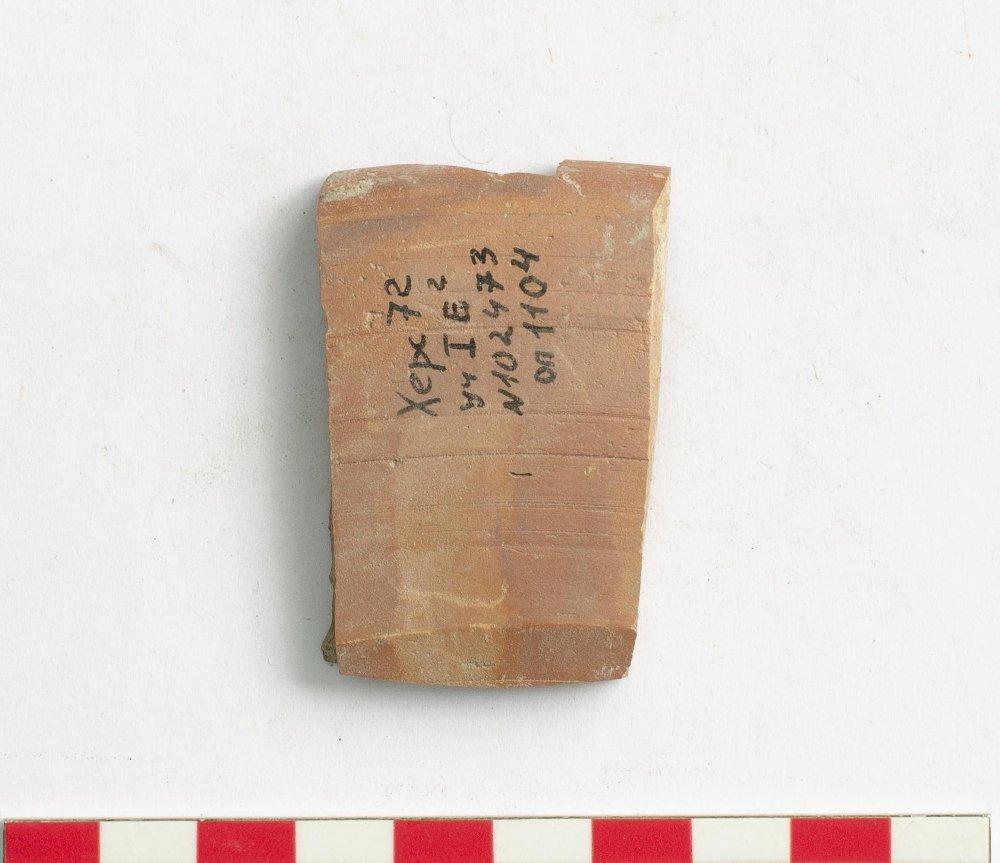 Херс 72
уч I Е 2
N 102473
оп 1104